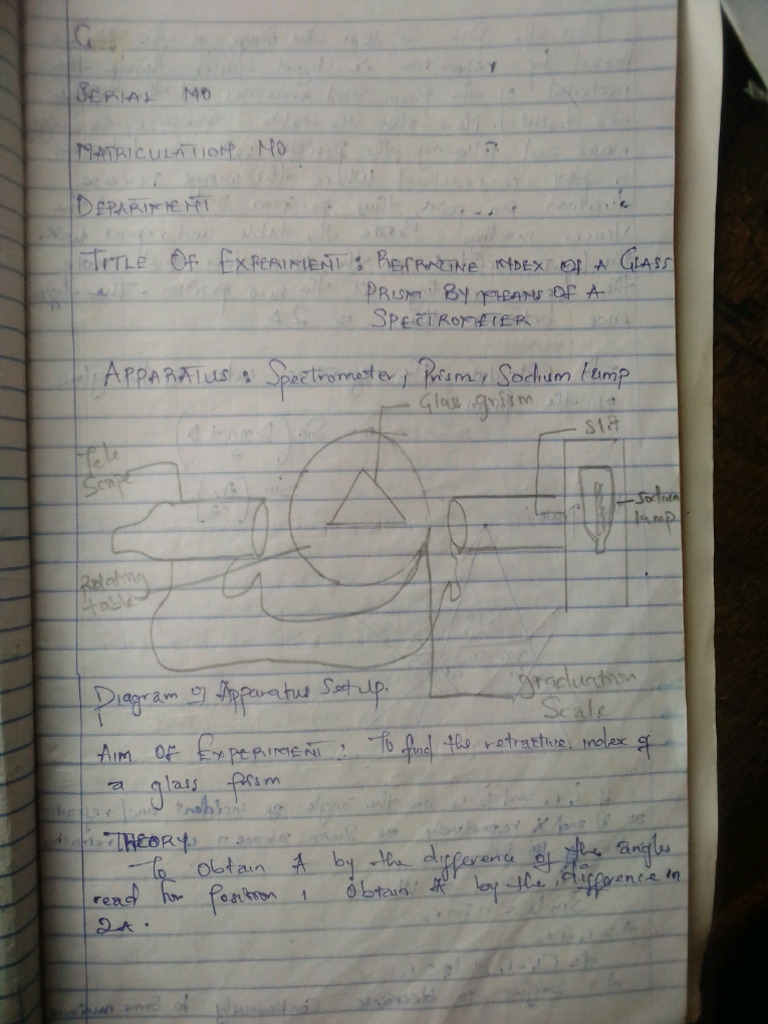 G
SERIAL NO
MATRICULATION NO
DEPARTMENT
TITLE OF EXPERIMENT: REFRACTIVE INDEX OF A GLASS
PRISM BY MEANS OF A
SPECTROMETER
APPARATUS: Spectrometer, Prism, Sodium lamp
Glass prism
Slit
Tele
Scope
Sodium
lamp
Rotating
table
graduation
Scale
Diagram of Apparatus Set up.
AIM OF EXPERIMENT: To find the refractive index of
a glass prism
THEORY
To obtain A by the difference of the angles
read for Position 1 obtain A by the difference in
2A.